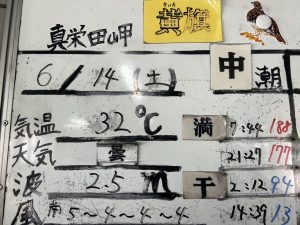 真栄田岬
きいろ
黄旗
6/14(土)
中潮
気温 32℃
満 7:44 188
天気 曇
21:27 177
波 2.5m
干 2:12 94
風 南 5~4~4~4
14:39 13